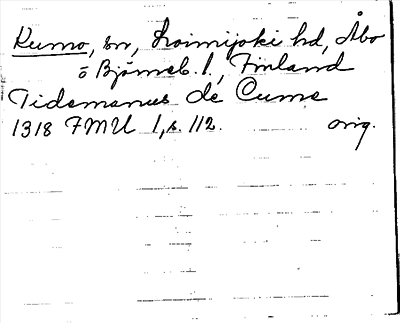 Kumo, sn, Loimijoki hd, Åbo
o Björneb. l., Finland
Tidemanus de Cumo
1318 FMU 1, s. 112. orig.